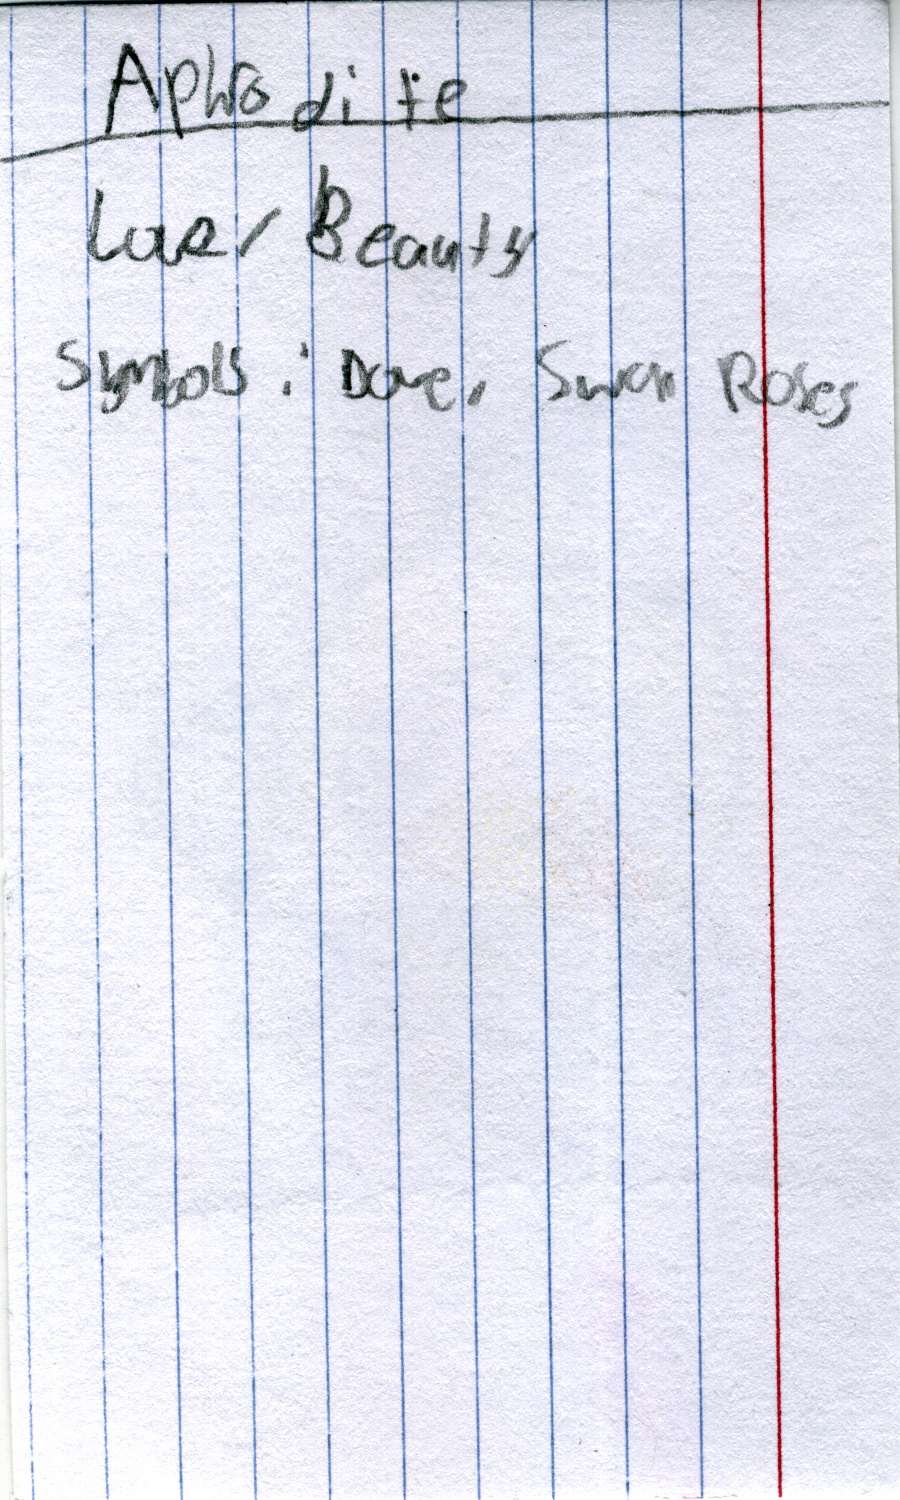 Aphrodite
Love/Beauty
Symbols: Dove, Swan Roses